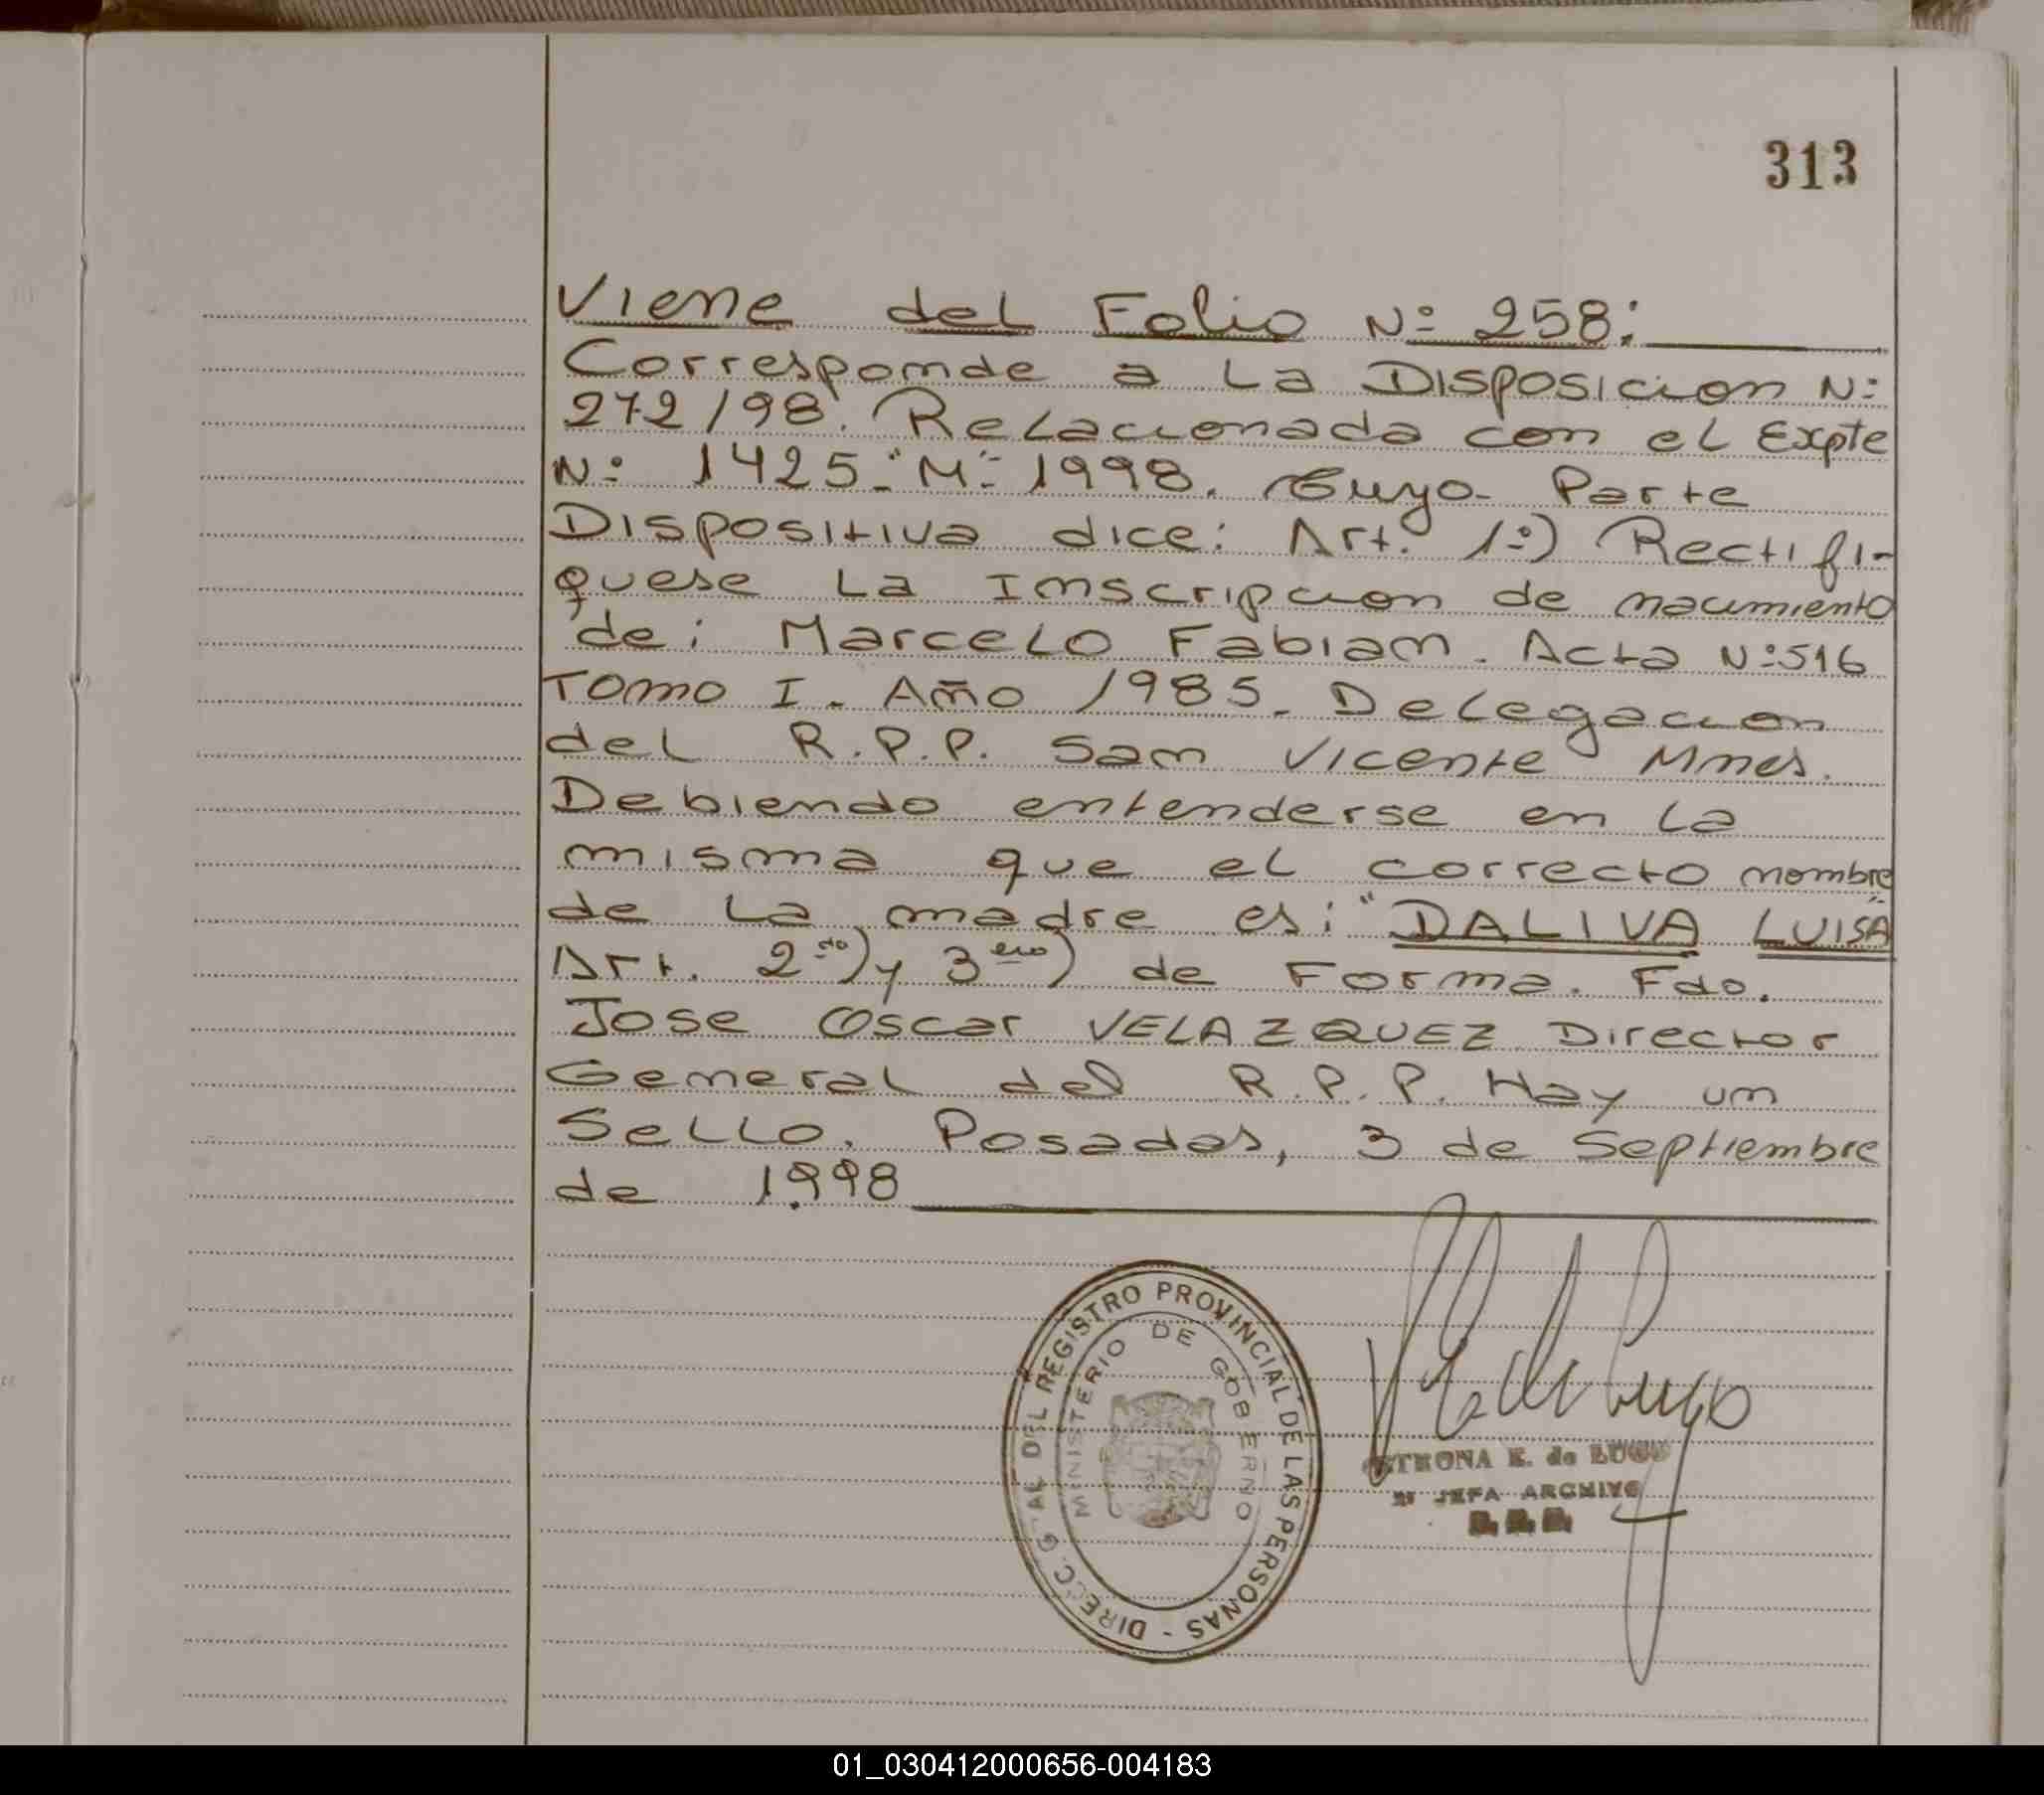 313
Viene del Folio Nº 258:
Corresponde a La Disposicion Nº
272/98. Relacionada con el Expte
Nº 1425-"M"-1998. Cuyo Parte
Dispositiva dice: Art. 1º) Rectifi-
quese La Inscripcion de nacimiento
de: Marcelo Fabian. Acta Nº 516
Tomo I. Año 1985. Delegacion
del R.P.P. San Vicente Mnes.
Debiendo entenderse en La
misma que el correcto nombre
de La madre es: "DALIVA LUISA"
Art. 2do) y 3ero) de Forma. Fdo.
Jose Oscar VELAZQUEZ Director
General del R.P.P. Hay un
Sello. Posadas, 3 de Septiembre
de 1998
DIRECC. GRAL DEL REGISTRO PROVINCIAL DE LAS PERSONAS -
MINISTERIO DE GOBIERNO
E. de LUGO
JEFA ARCHIVO
01_030412000656-004183